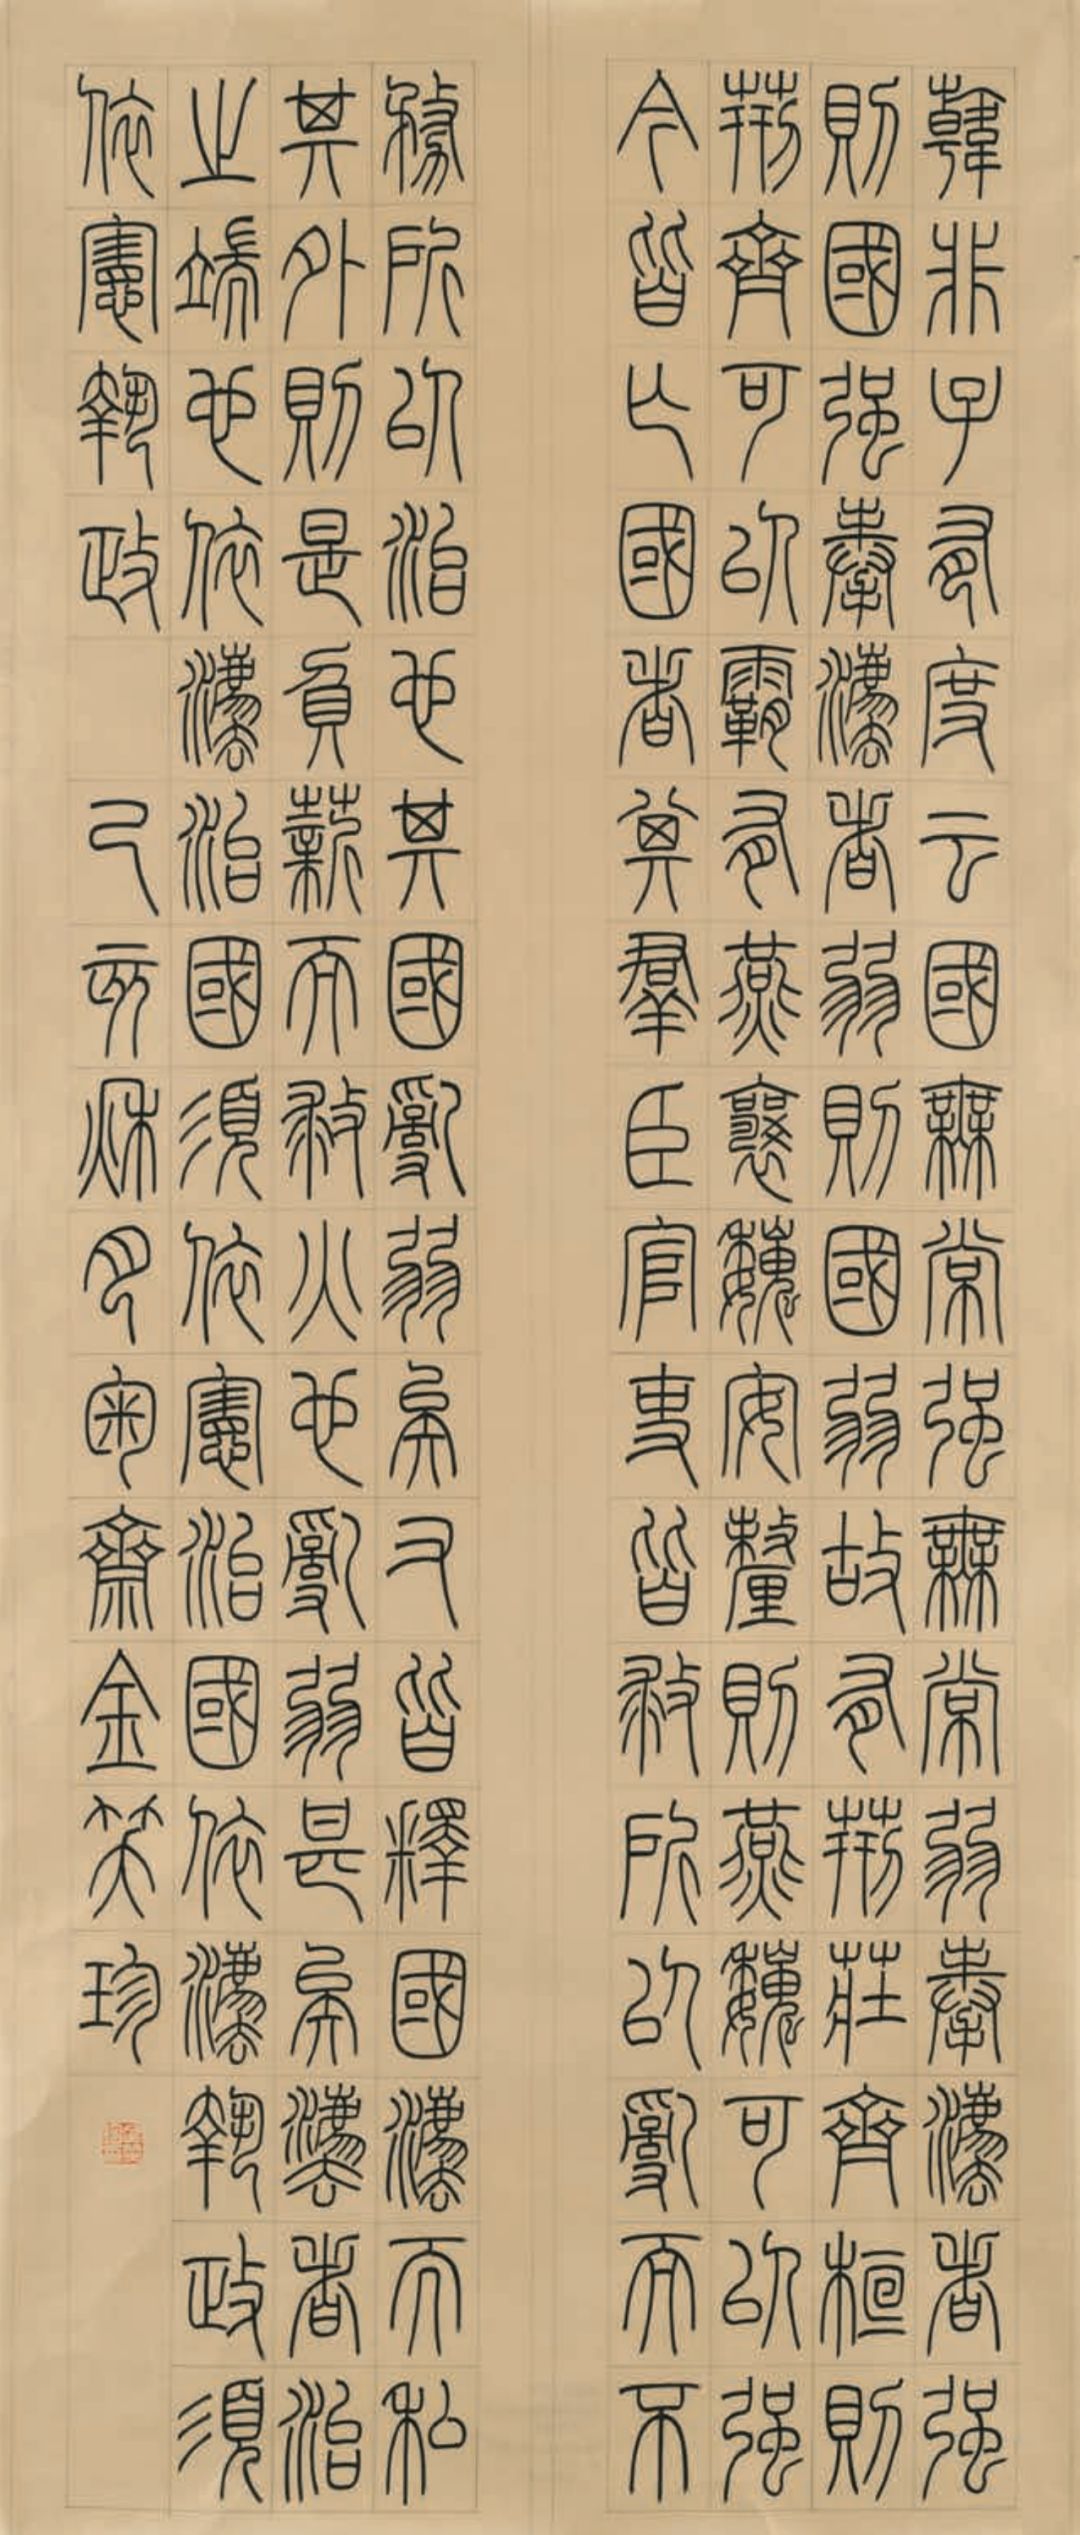 韓非子有度云國無常强無常弱奉灋者强
則國强奉灋者弱則國弱故有荊莊齊桓則
荊齊可以霸有燕襄魏安釐則燕魏可以强
今皆亡國者其羣臣官吏皆務所以亂而不
務所以治也其國亂弱矣又皆釋國灋而私
其外則是負薪而救火也亂弱甚矣灋者治
之端也依灋治國須依憲治國依灋執政須
依憲執政 己亥秋月齋金笑珍